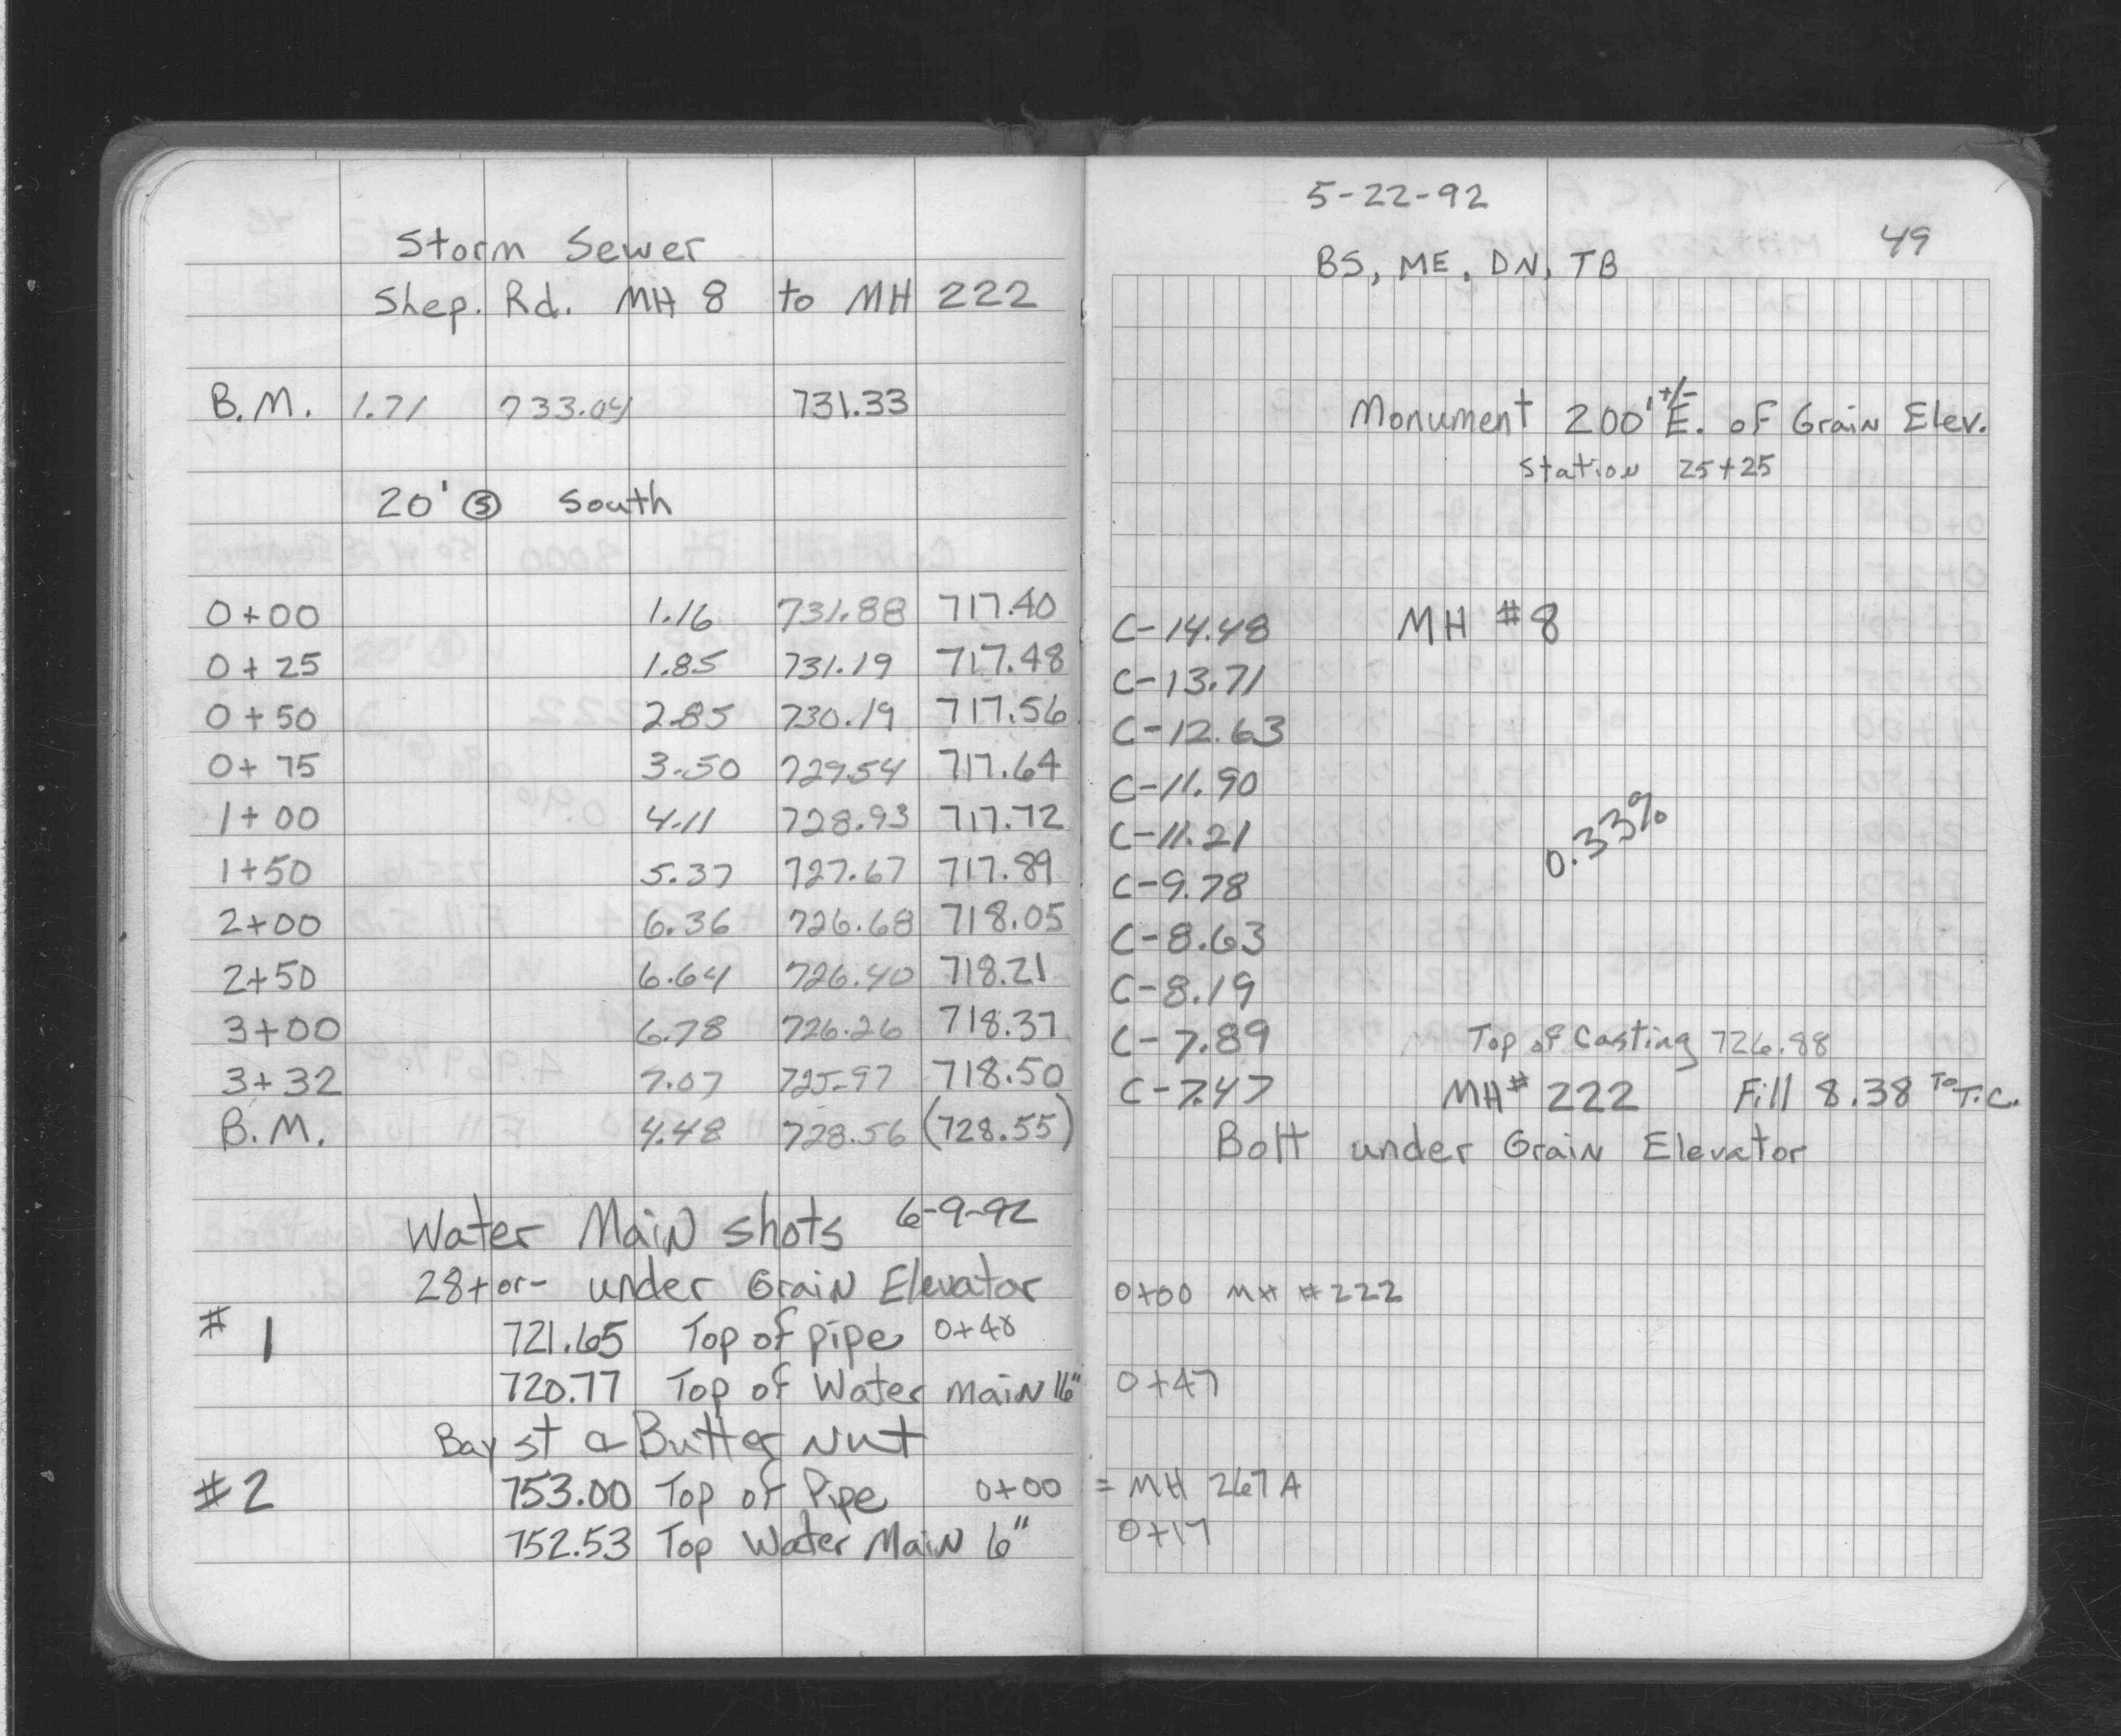 Storm Sewer
Shep. Rd. MH 8 to MH 222
B.M. 1.71 733.04 731.33
20' Ⓢ South
0+00 1.16 731.88 717.40
0+25 1.85 731.19 717.48
0+50 2.85 730.19 717.56
0+75 3.50 729.54 717.64
1+00 4.11 728.93 717.72
1+50 5.37 727.67 717.89
2+00 6.36 726.68 718.05
2+50 6.64 726.40 718.21
3+00 6.78 726.26 718.37
3+32 7.07 725.97 718.50
B.M. 4.48 728.56 (728.55)
Water Main shots 6-9-92
28+or- under Grain Elevator
# 1 721.65 Top of pipe 0+48
720.77 Top of Water main 16"
Bay st & Butter Nut
#2 753.00 Top of Pipe 0+00
752.53 Top Water Main 6"
5-22-92
49
BS, ME, DN, TB
Monument 200'+/- E. of Grain Elev.
Station 25+25
C-14.48 MH #8
C-13.71
C-12.63
C-11.90
C-11.21
0.33%
C-9.78
C-8.63
C-8.19
C-7.89 Top of Casting 726.88
C-7.47 MH# 222 Fill 8.38 To T.C.
Bolt under Grain Elevator
0+00 MH #222
0+47
= MH 267A
0+17